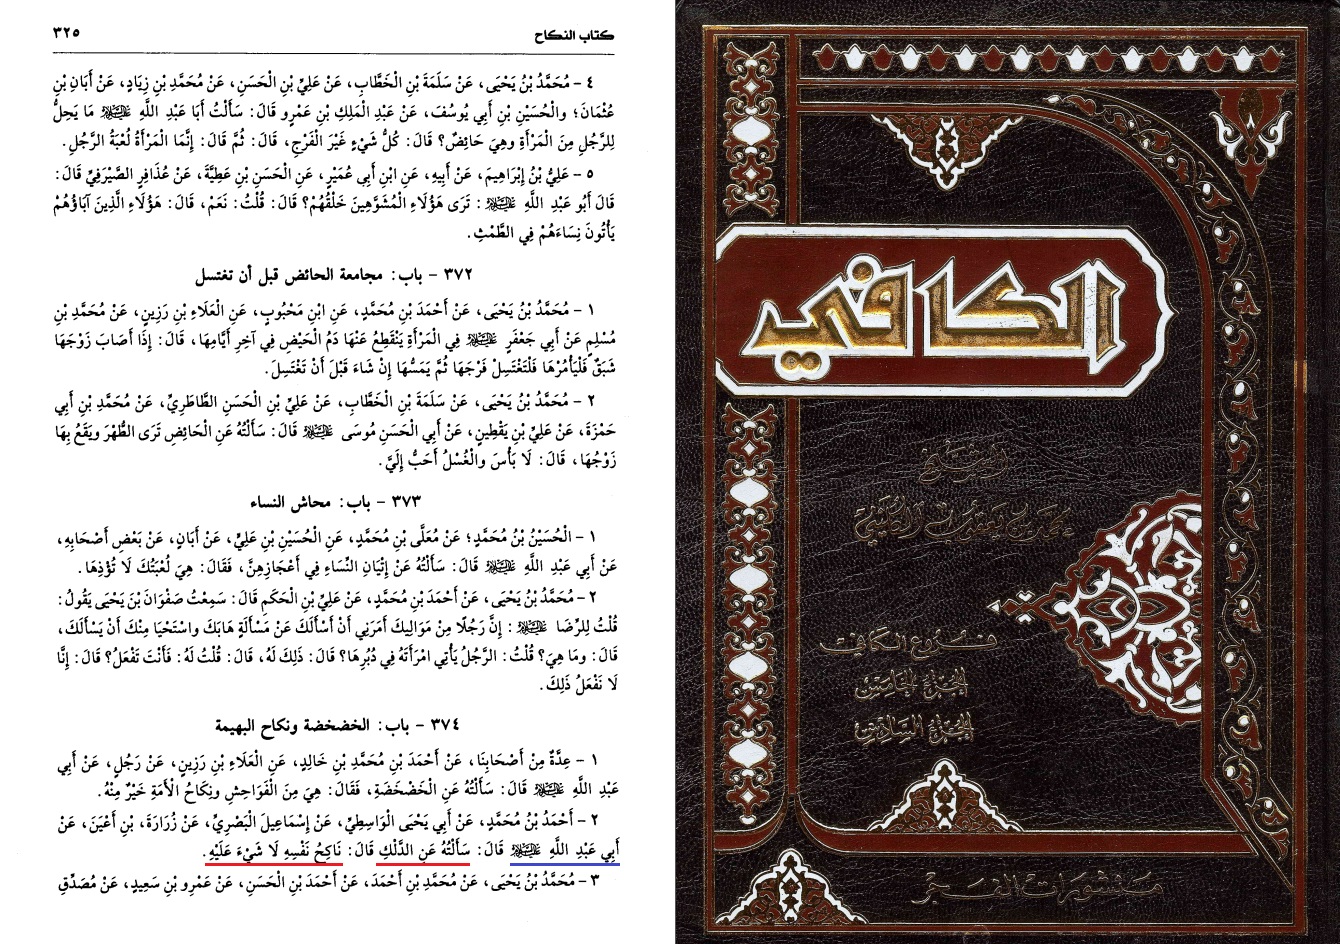 كتاب النكاح ٣٢٥
٤ - مُحَمَّدُ بْنُ يَحْيَى، عَنْ سَلَمَةَ بْنِ الْخَطَّابِ، عَنْ عَلِيِّ بْنِ الْحَسَنِ، عَنْ مُحَمَّدِ بْنِ زِيَادٍ، عَنْ أَبَانِ بْنِ
عُثْمَانَ؛ والْحُسَيْنِ بْنِ أَبِي يُوسُفَ، عَنْ عَبْدِ الْمَلِكِ بْنِ عَمْرٍو قَالَ: سَأَلْتُ أَبَا عَبْدِ اللَّهِ عَلَيْهِ السَّلَام مَا يَحِلُّ
لِلرَّجُلِ مِنَ الْمَرْأَةِ وهِيَ حَائِضٌ؟ قَالَ: كُلُّ شَيْءٍ غَيْرَ الْفَرْجِ، قَالَ: ثُمَّ قَالَ: إِنَّمَا الْمَرْأَةُ لُعْبَةُ الرَّجُلِ.
٥ - عَلِيُّ بْنُ إِبْرَاهِيمَ، عَنْ أَبِيهِ، عَنِ ابْنِ أَبِي عُمَيْرٍ، عَنِ الْحَسَنِ بْنِ عَطِيَّةَ، عَنْ عُذَافِرٍ الصَّيْرَفِيِّ قَالَ:
قَالَ أَبُو عَبْدِ اللَّهِ عَلَيْهِ السَّلَام: تَرَى هَؤُلَاءِ الْمُشَوَّهِينَ خَلْقُهُمْ؟ قَالَ: قُلْتُ: نَعَمْ، قَالَ: هَؤُلَاءِ الَّذِينَ آبَاؤُهُمْ
يَأْتُونَ نِسَاءَهُمْ فِي الطَّمْثِ.
٣٧٢ - باب: مجامعة الحائض قبل أن تغتسل
١ - مُحَمَّدُ بْنُ يَحْيَى، عَنْ أَحْمَدَ بْنِ مُحَمَّدٍ، عَنِ ابْنِ مَحْبُوبٍ، عَنِ الْعَلَاءِ بْنِ رَزِينٍ، عَنْ مُحَمَّدِ بْنِ
مُسْلِمٍ عَنْ أَبِي جَعْفَرٍ عَلَيْهِ السَّلَام فِي الْمَرْأَةِ يَنْقَطِعُ عَنْهَا دَمُ الْحَيْضِ فِي آخِرِ أَيَّامِهَا، قَالَ: إِذَا أَصَابَ زَوْجَهَا
شَبَقٌ فَلْيَأْمُرْهَا فَلْتَغْتَسِلْ فَرْجَهَا ثُمَّ يَمَسُّهَا إِنْ شَاءَ قَبْلَ أَنْ تَغْتَسِلَ.
٢ - مُحَمَّدُ بْنُ يَحْيَى، عَنْ سَلَمَةَ بْنِ الْخَطَّابِ، عَنْ عَلِيِّ بْنِ الْحَسَنِ الطَّاطَرِيِّ، عَنْ مُحَمَّدِ بْنِ أَبِي
حَمْزَةَ، عَنْ عَلِيِّ بْنِ يَقْطِينٍ، عَنْ أَبِي الْحَسَنِ مُوسَى عَلَيْهِ السَّلَام قَالَ: سَأَلْتُهُ عَنِ الْحَائِضِ تَرَى الطُّهْرَ ويَقَعُ بِهَا
زَوْجُهَا، قَالَ: لَا بَأْسَ والْغُسْلُ أَحَبُّ إِلَيَّ.
٣٧٣ - باب: محاش النساء
١ - الْحُسَيْنُ بْنُ مُحَمَّدٍ؛ عَنْ مُعَلَّى بْنِ مُحَمَّدٍ، عَنِ الْحُسَيْنِ بْنِ عَلِيٍّ، عَنْ أَبَانٍ، عَنْ بَعْضِ أَصْحَابِهِ،
عَنْ أَبِي عَبْدِ اللَّهِ عَلَيْهِ السَّلَام قَالَ: سَأَلْتُهُ عَنْ إِتْيَانِ النِّسَاءِ فِي أَعْجَازِهِنَّ، فَقَالَ: هِيَ لُعْبَتُكَ لَا تُؤْذِهَا.
٢ - مُحَمَّدُ بْنُ يَحْيَى، عَنْ أَحْمَدَ بْنِ مُحَمَّدٍ، عَنْ عَلِيِّ بْنِ الْحَكَمِ قَالَ: سَمِعْتُ صَفْوَانَ بْنَ يَحْيَى يَقُولُ:
قُلْتُ لِلرِّضَا عَلَيْهِ السَّلَام: إِنَّ رَجُلًا مِنْ مَوَالِيكَ أَمَرَنِي أَنْ أَسْأَلَكَ عَنْ مَسْأَلَةٍ هَابَكَ واسْتَحْيَا مِنْكَ أَنْ يَسْأَلَكَ،
قَالَ: ومَا هِيَ؟ قُلْتُ: الرَّجُلُ يَأْتِي امْرَأَتَهُ فِي دُبُرِهَا؟ قَالَ: ذَلِكَ لَهُ، قَالَ: قُلْتُ لَهُ: فَأَنْتَ تَفْعَلُ؟ قَالَ: إِنَّا
لَا نَفْعَلُ ذَلِكَ.
٣٧٤ - باب: الخضخضة ونكاح البهيمة
١ - عِدَّةٌ مِنْ أَصْحَابِنَا، عَنْ أَحْمَدَ بْنِ مُحَمَّدِ بْنِ خَالِدٍ، عَنِ الْعَلَاءِ بْنِ رَزِينٍ، عَنْ رَجُلٍ، عَنْ أَبِي
عَبْدِ اللَّهِ عَلَيْهِ السَّلَام قَالَ: سَأَلْتُهُ عَنِ الْخَضْخَضَةِ، فَقَالَ: هِيَ مِنَ الْفَوَاحِشِ ونِكَاحُ الْأَمَةِ خَيْرٌ مِنْهُ.
٢ - أَحْمَدُ بْنُ مُحَمَّدٍ، عَنْ أَبِي يَحْيَى الْوَاسِطِيِّ، عَنْ إِسْمَاعِيلَ الْبَصْرِيِّ، عَنْ زُرَارَةَ، بْنِ أَعْيَنَ، عَنْ
أَبِي عَبْدِ اللَّهِ عَلَيْهِ السَّلَام قَالَ: سَأَلْتُهُ عَنِ الدَّلْكِ قَالَ: نَاكِحُ نَفْسِهِ لَا شَيْءَ عَلَيْهِ.
٣ - مُحَمَّدُ بْنُ يَحْيَى، عَنْ مُحَمَّدِ بْنِ أَحْمَدَ، عَنْ أَحْمَدَ بْنِ الْحَسَنِ، عَنْ عَمْرِو بْنِ سَعِيدٍ، عَنْ مُصَدِّقِ
الكافي
محمد بن يعقوب الكليني
فروع الكافي
الجزء الخامس
الجزء السادس
منشورات الفجر